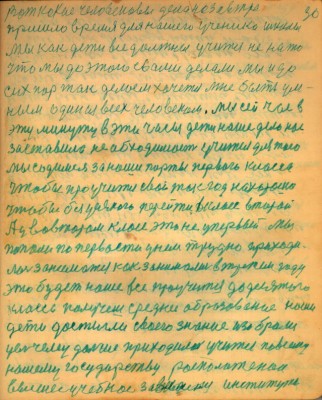 30
пришло время для нашего ученеко школы
Мы как дети все должны учится не на то
что мы до этого свами делали мы и до
сих пор так делаем хочется мне быть ум-
ным один из всех человеком. Мы сей час в
эту минуту в эти часы дети наше дело нас
заставило не обходимост учится для того
мы садимся за наши парты первого класса
Чтобы проучится свой ток год на хорошо
чтобы без уевлого перейти, в класс второй
А двовтором класе это не упервый мы
пошли по первости уним трудно проходи-
лос заниматся как занимались втретем году
это будет наше все проучится додесятого
класса получем среднее образование наши
дети достигли своего знание избрали
увочему долгие приходилос учится по всему
нашему государству расположеная
высшее учебное заведения института